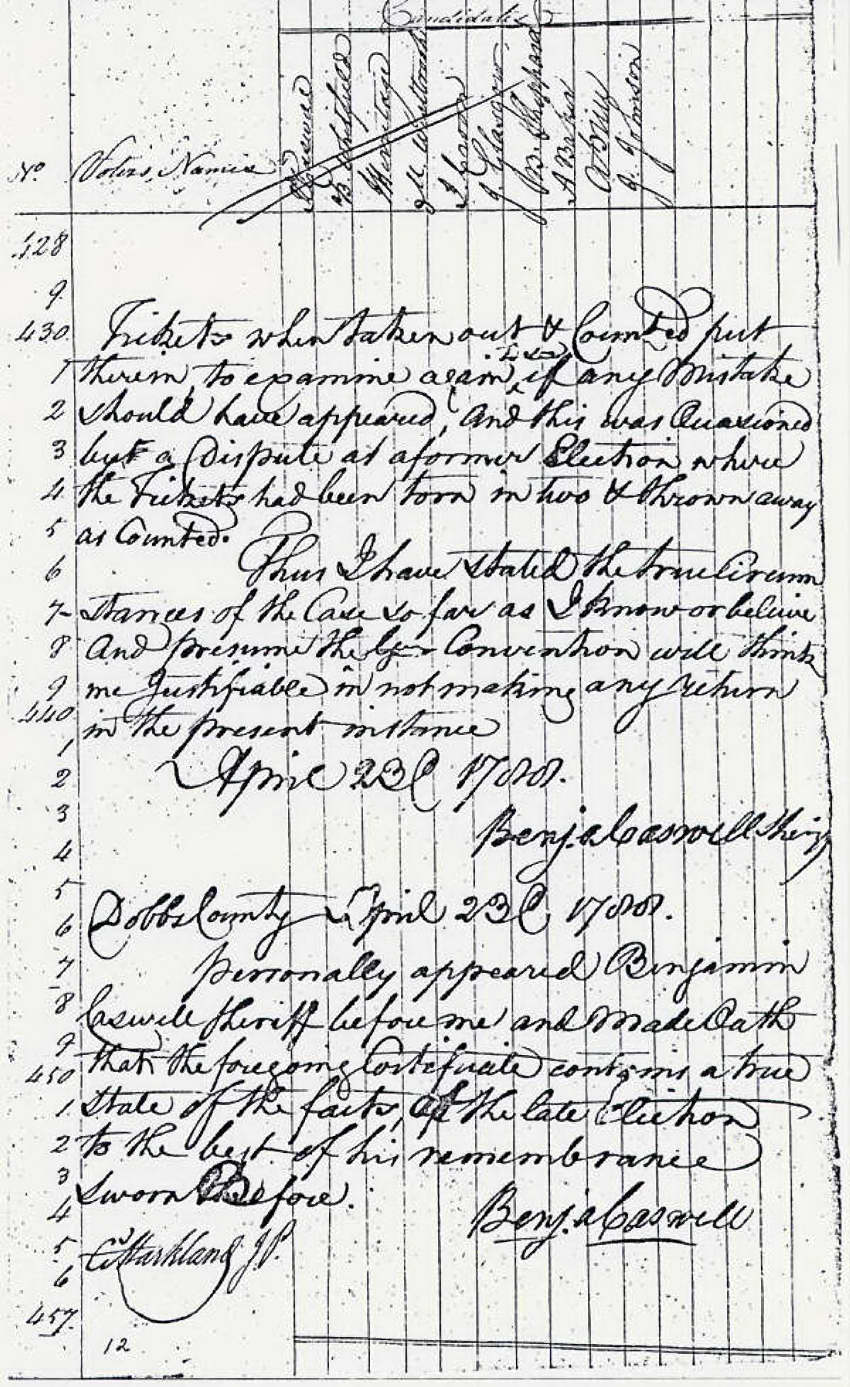 Candidates
No. Voters Names R Caswell B Sheffield W Croom J Glasgow B Sheppard A Baker J Johnson
428
9
430 Tickets when taken out & Counted put
1 therein, to examine again, if any Mistake
2 should have appeared, And this was Occasioned
3 by a Dispute at a former Election where
4 the Tickets had been torn in two & thrown away
5 as Counted.
6 Thus I have stated the true Circum
7 stances of the Case so far as I know or believe
8 And presume the Convention will think
9 me Justifiable in not making any return
440 in the present instance
1
2 April 23d 1788.
3
4 Benja Caswell Sheriff
5
6 Dobbs County April 23d 1788.
7 Personally appeared Benjamin
8 Caswell Sheriff before me and Made Oath
9 that the foregoing Certificate contains a true
450
1 State of the facts, of the late Election
2 to the best of his remembrance
3 Sworn Before.
4 Benja Caswell
5 Markland J.P.
6
457
12